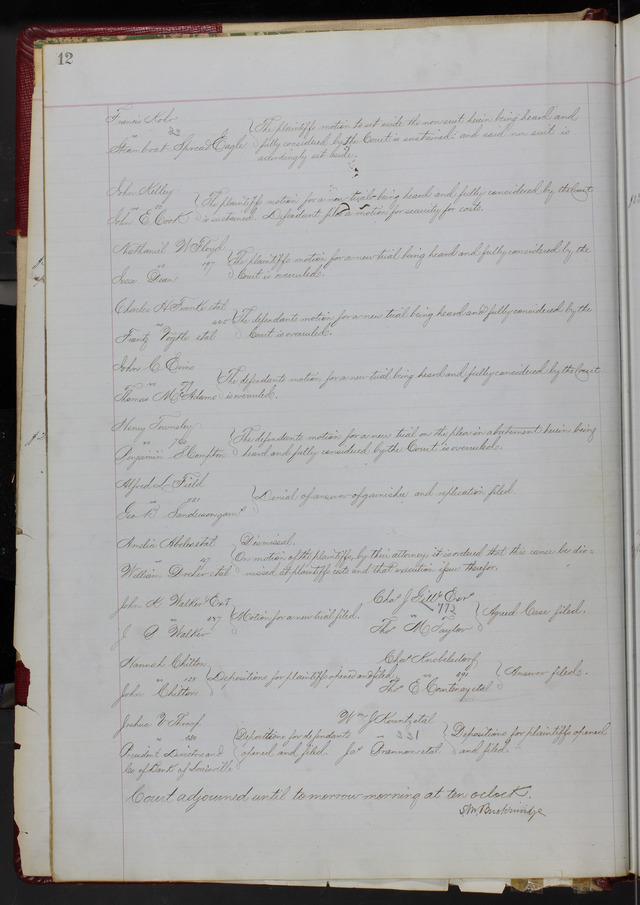 12
Francis Rohr
vs 22
Steamboat Spread Eagle
The plaintiffs motion to set aside the non suit herein being heard and
fully considered by the Court is sustained and said non suit is
accordingly set aside.
John Kelley
vs
John E. Cook
The plaintiffs motion for a new trial being heard and fully considered by the Court
is sustained. Defendant files a motion for security for costs.
Nathaniel W Floyd
vs 197
Dean
The plaintiffs motion for a new trial being heard and fully considered by the
Court is overruled.
Charles H Frantz etal
vs
Frantz etal
The defendants motion for a new trial being heard and fully considered by the
Court is overruled.
John C. Evins
vs
Thomas McAdams
The defendants motion for a new trial being heard and fully considered by the Court
is overruled.
Henry Townsley
vs
Benjamin S Compton
The defendants motion for a new trial on the plea in abatement herein being
heard and fully considered by the Court is overruled.
Alfred L. Field
vs
Geo B Sanderson
Denial of answer of garnishee and replication filed.
Amelia etal
vs
William etal
Dismissal.
On motion of the plaintiffs, by their attorney it is ordered that this cause be dis=
missed at plaintiffs costs and that execution issue therefor.
John K Walker Exr
vs
J Walker
Motion for a new trial filed.
Chas J Exr
vs 772
Thos M Taylor
Agreed Case filed.
Hannah Chitton
vs 125
John Chitton
Depositions for plaintiff opened and filed
Chas Knobelsdorf
vs 291
Thos E etal
Answer filed.
Joshua
vs
President Directors and
Co of Bank of Louisville
Depositions for defendants
opened and filed.
Wm J etal
vs 221
Jas Brannon etal
Depositions for plaintiffs opened
and filed.
Court adjourned until tomorrow morning at ten oclock.
S M Breckinridge